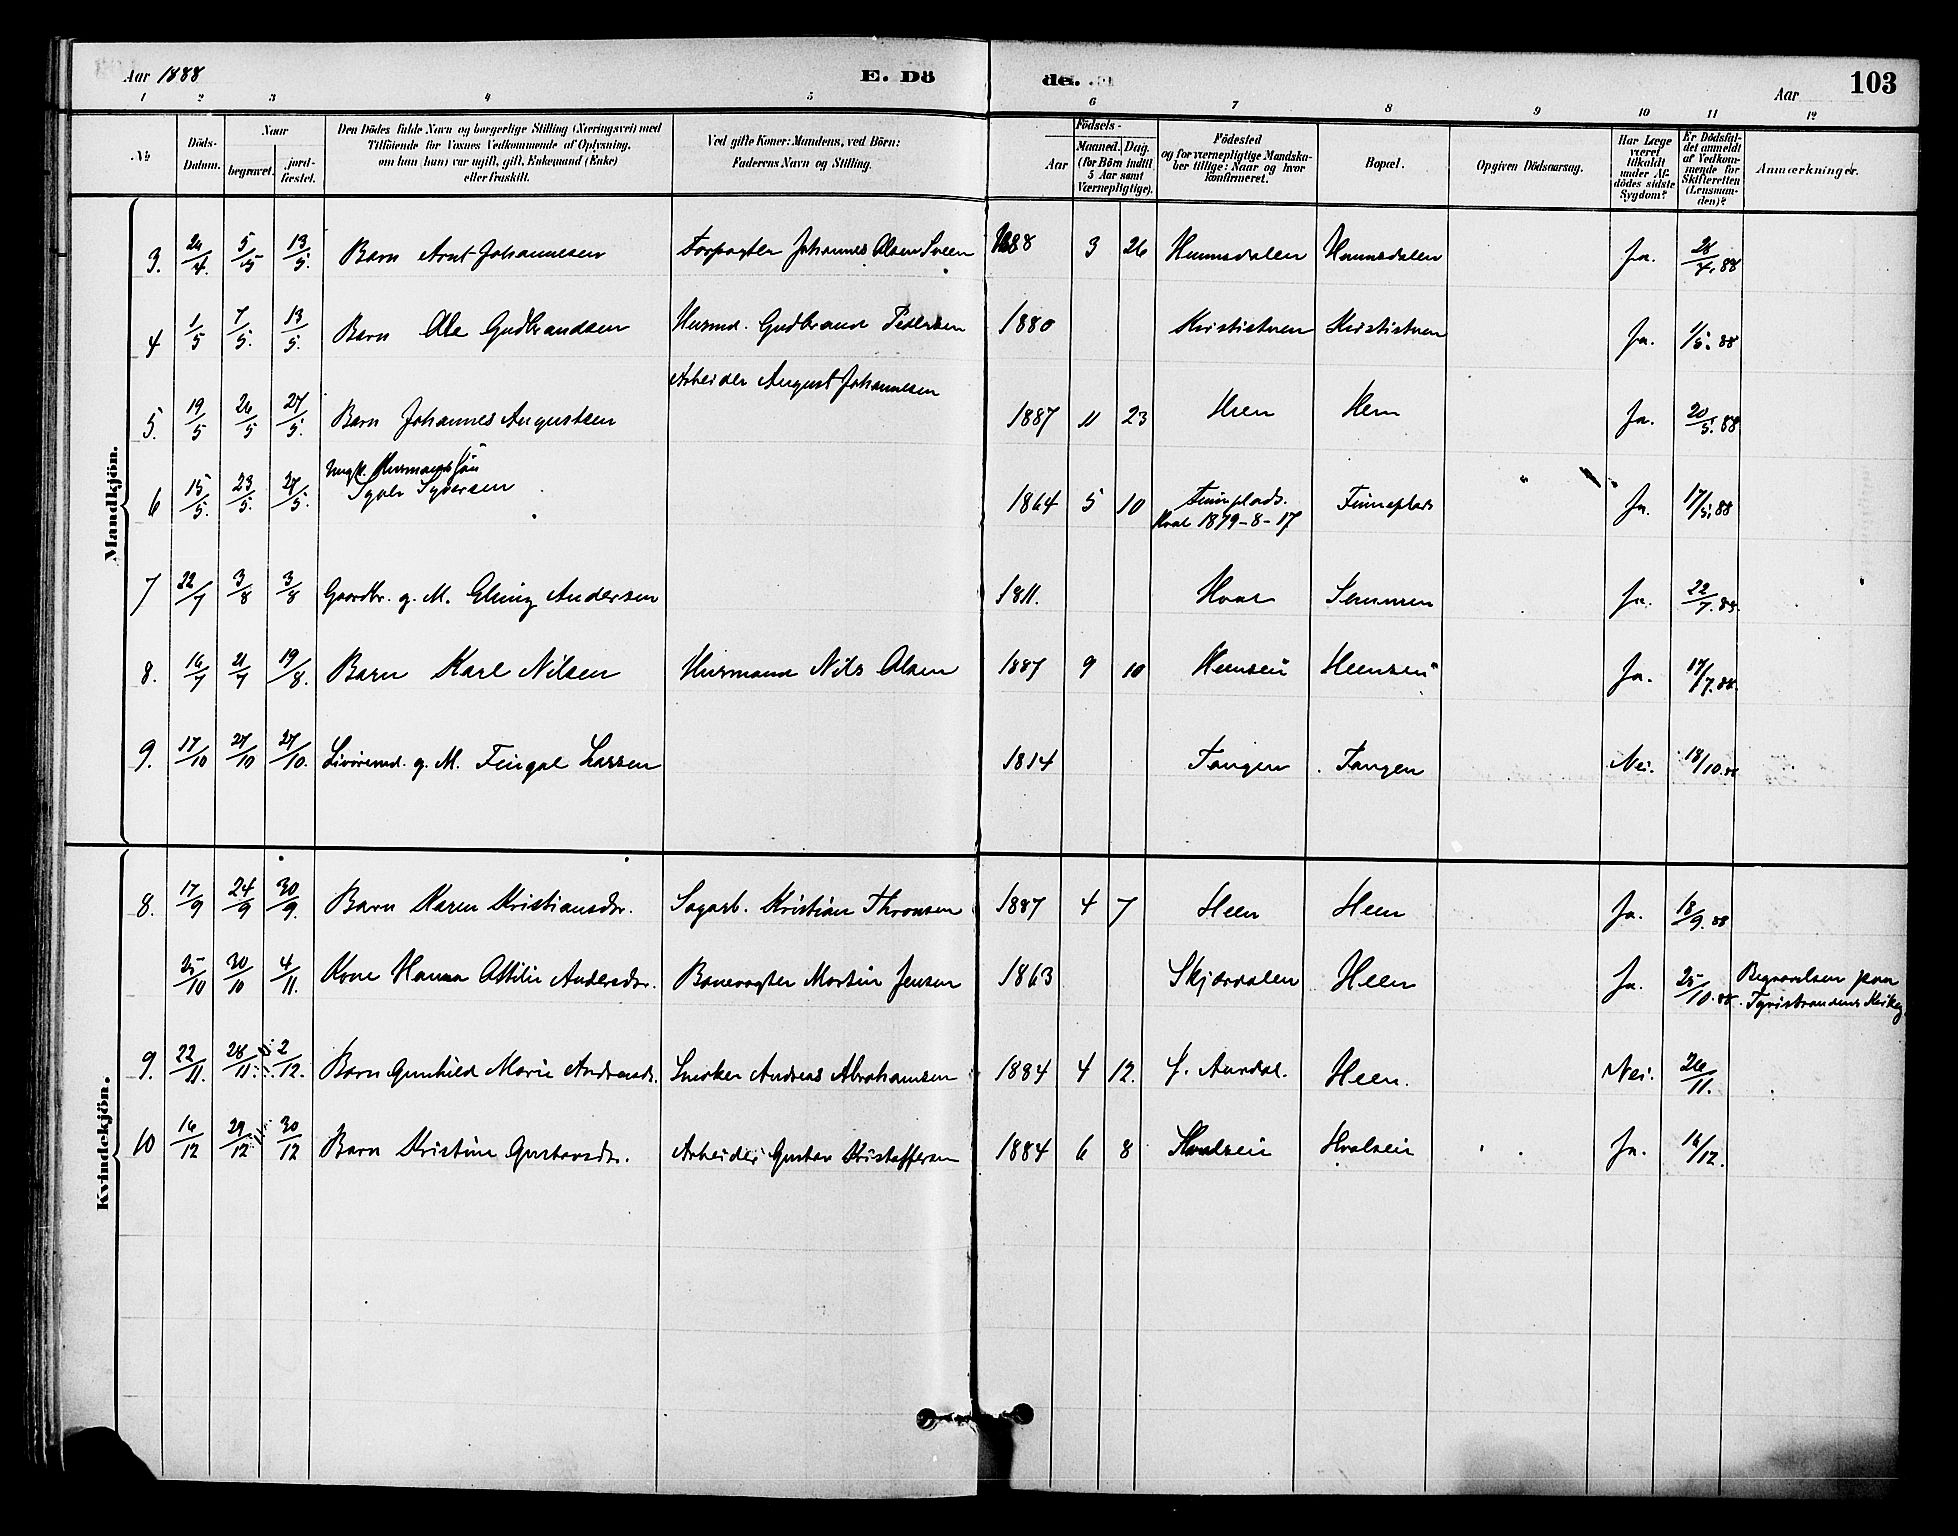 Aar 1888
E. Dö
de.
Aar
103
1 2 3 4 5 6 7 8 9 10 11 12
No
Döds-Datum.
Naar
begravet.
jordfæstet.
Den Dödes fulde Navn og borgerlige Stilling (Næringsvei) med
Tilföiende for Voxnes Vedkommende af Oplysning,
om han (hun) var ugift, gift, Enkemand (Enke)
eller fraskilt.
Ved gifte Koner: Mandens, ved Börn:
Faderens Navn og Stilling.
Födsels-
Aar
Maaned. Dag.
(for Börn indtil
5 Aar samt
Værnepligtige).
Födested
og for værnepligtige Mandska-
ber tillige: Naar og hvor
konfirmeret.
Bopæl.
Opgiven Dödsaarsag.
Har Læge
været
tilkaldt
under Af-
dödes sidste
Sygdom?
Er Dödsfal-
det anmeldt
af Vedkom-
mende for
Skifteretten
(Lensman-
den)?
Anmærkninger.
Mandkjön.
3. 24/4. 5/5 13/5. Barn Arnt Johannesen Forpagter Johannes Olsen Sveen 1888 3 26 Hemsdalen Hemsdalen Ja. 28/4. 88
4 1/5 7/5. 13/5. Barn Ole Gudbrandsen Husmd. Gudbrand Pedersen 1880 Krististuen Krististuen Ja. 1/5. 88
5. 19/5 26/5 27/5. Barn Johannes Augustsen Arbeider August Johannesen 1887 11 23 Hien Hen Ja. 20/5. 88
6 15/5. 23/5. 27/5. Ungk. Husmandssön
Syver Syversen 1864 5 10 Finneplads. Finneplads Ja. 17/5. 88
Hval 1879-8-17
7 22/7 3/8 3/8 Gaardbr. g. M. Elling Andersen 1811. Hval Semmen Ja. 22/7. 88
8. 16/7 21/7 19/8. Barn Karl Nilsen Husmand Nils Olsen 1887 9 10 Heensei Heensei Ja. 17/7. 88.
9. 17/10 27/10 27/10. Livöremd. g. M. Fingal Larsen 1814 Tangen Tangen Nei. 18/10. 88
Kvindekjön.
8. 17/9 24/9 30/9. Barn Karen Kristiansdr. Sagarb. Kristian Thronsen 1887 4 7 Heen Heen Ja. 18/9. 88
25/10 30/10 4/11. Kone Hanna Ottilie Andersdr. Banevogter Martin Jensen 1863 Skjærdalen Heen Ja. 25/10. 88. Begravelsen paa
Tyristrandens Kirkeg.
9. 22/11. 28/11. 2/12. Barn Gunhild Marie Andreasdr. Snedker Andreas Abrahamsen 1884 4 12. S. Aurdal. Heen. Nei. 26/11.
10 16/12 29/12 30/12 Barn Kristine Gustavsdr. Arbeider Gustav Kristoffersen 1884 6 8 Hvalsein Hvalsein Ja. 16/12.